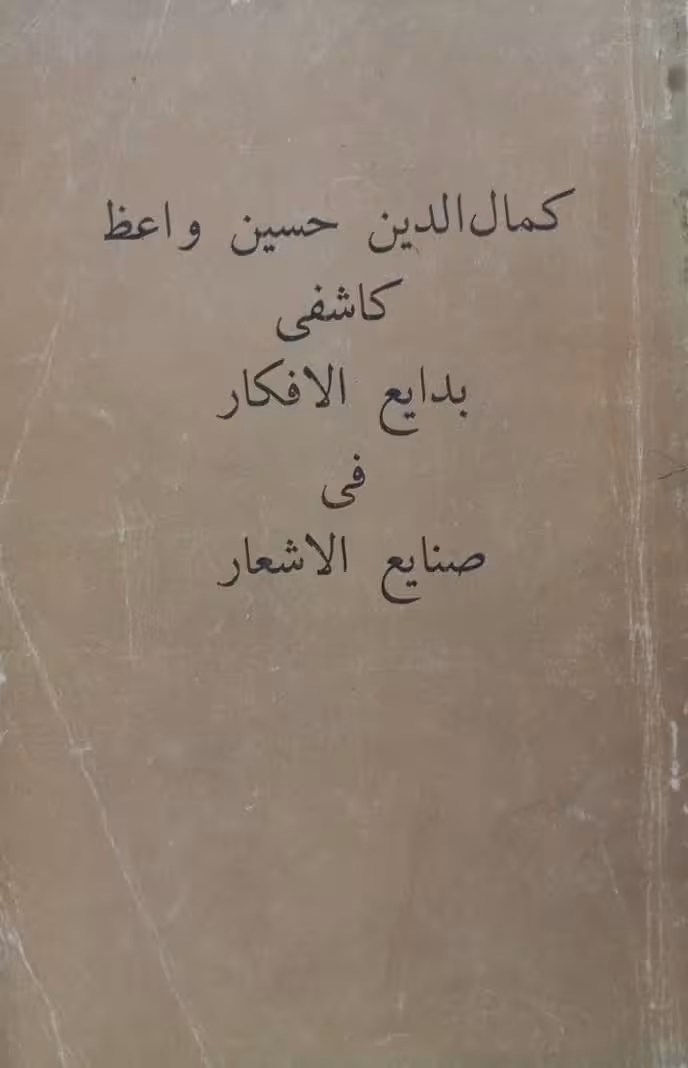 کمال‌الدین حسین واعظ
کاشفی
بدایع الافکار
فی
صنایع الاشعار